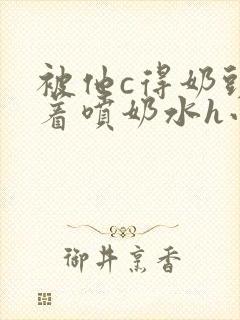 被他c得奶头
着喷奶水h小
御井烹香